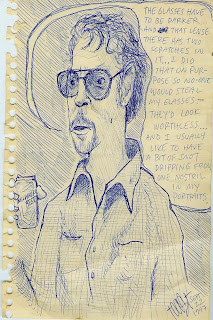 THE GLASSES HAVE
TO BE DARKER,
AND THAT LENSE
THERE HAS TWO
SCRATCHES IN
IT... I DID
THAT ON PUR-
POSE SO NO-ONE
WOULD STEAL
MY GLASSES —
THEY'D LOOK
WORTHLESS...
AND I USUALLY
LIKE TO HAVE
A BIT OF SNOT
DRIPPING FROM
ONE NOSTRIL
IN MY
PORTRAITS